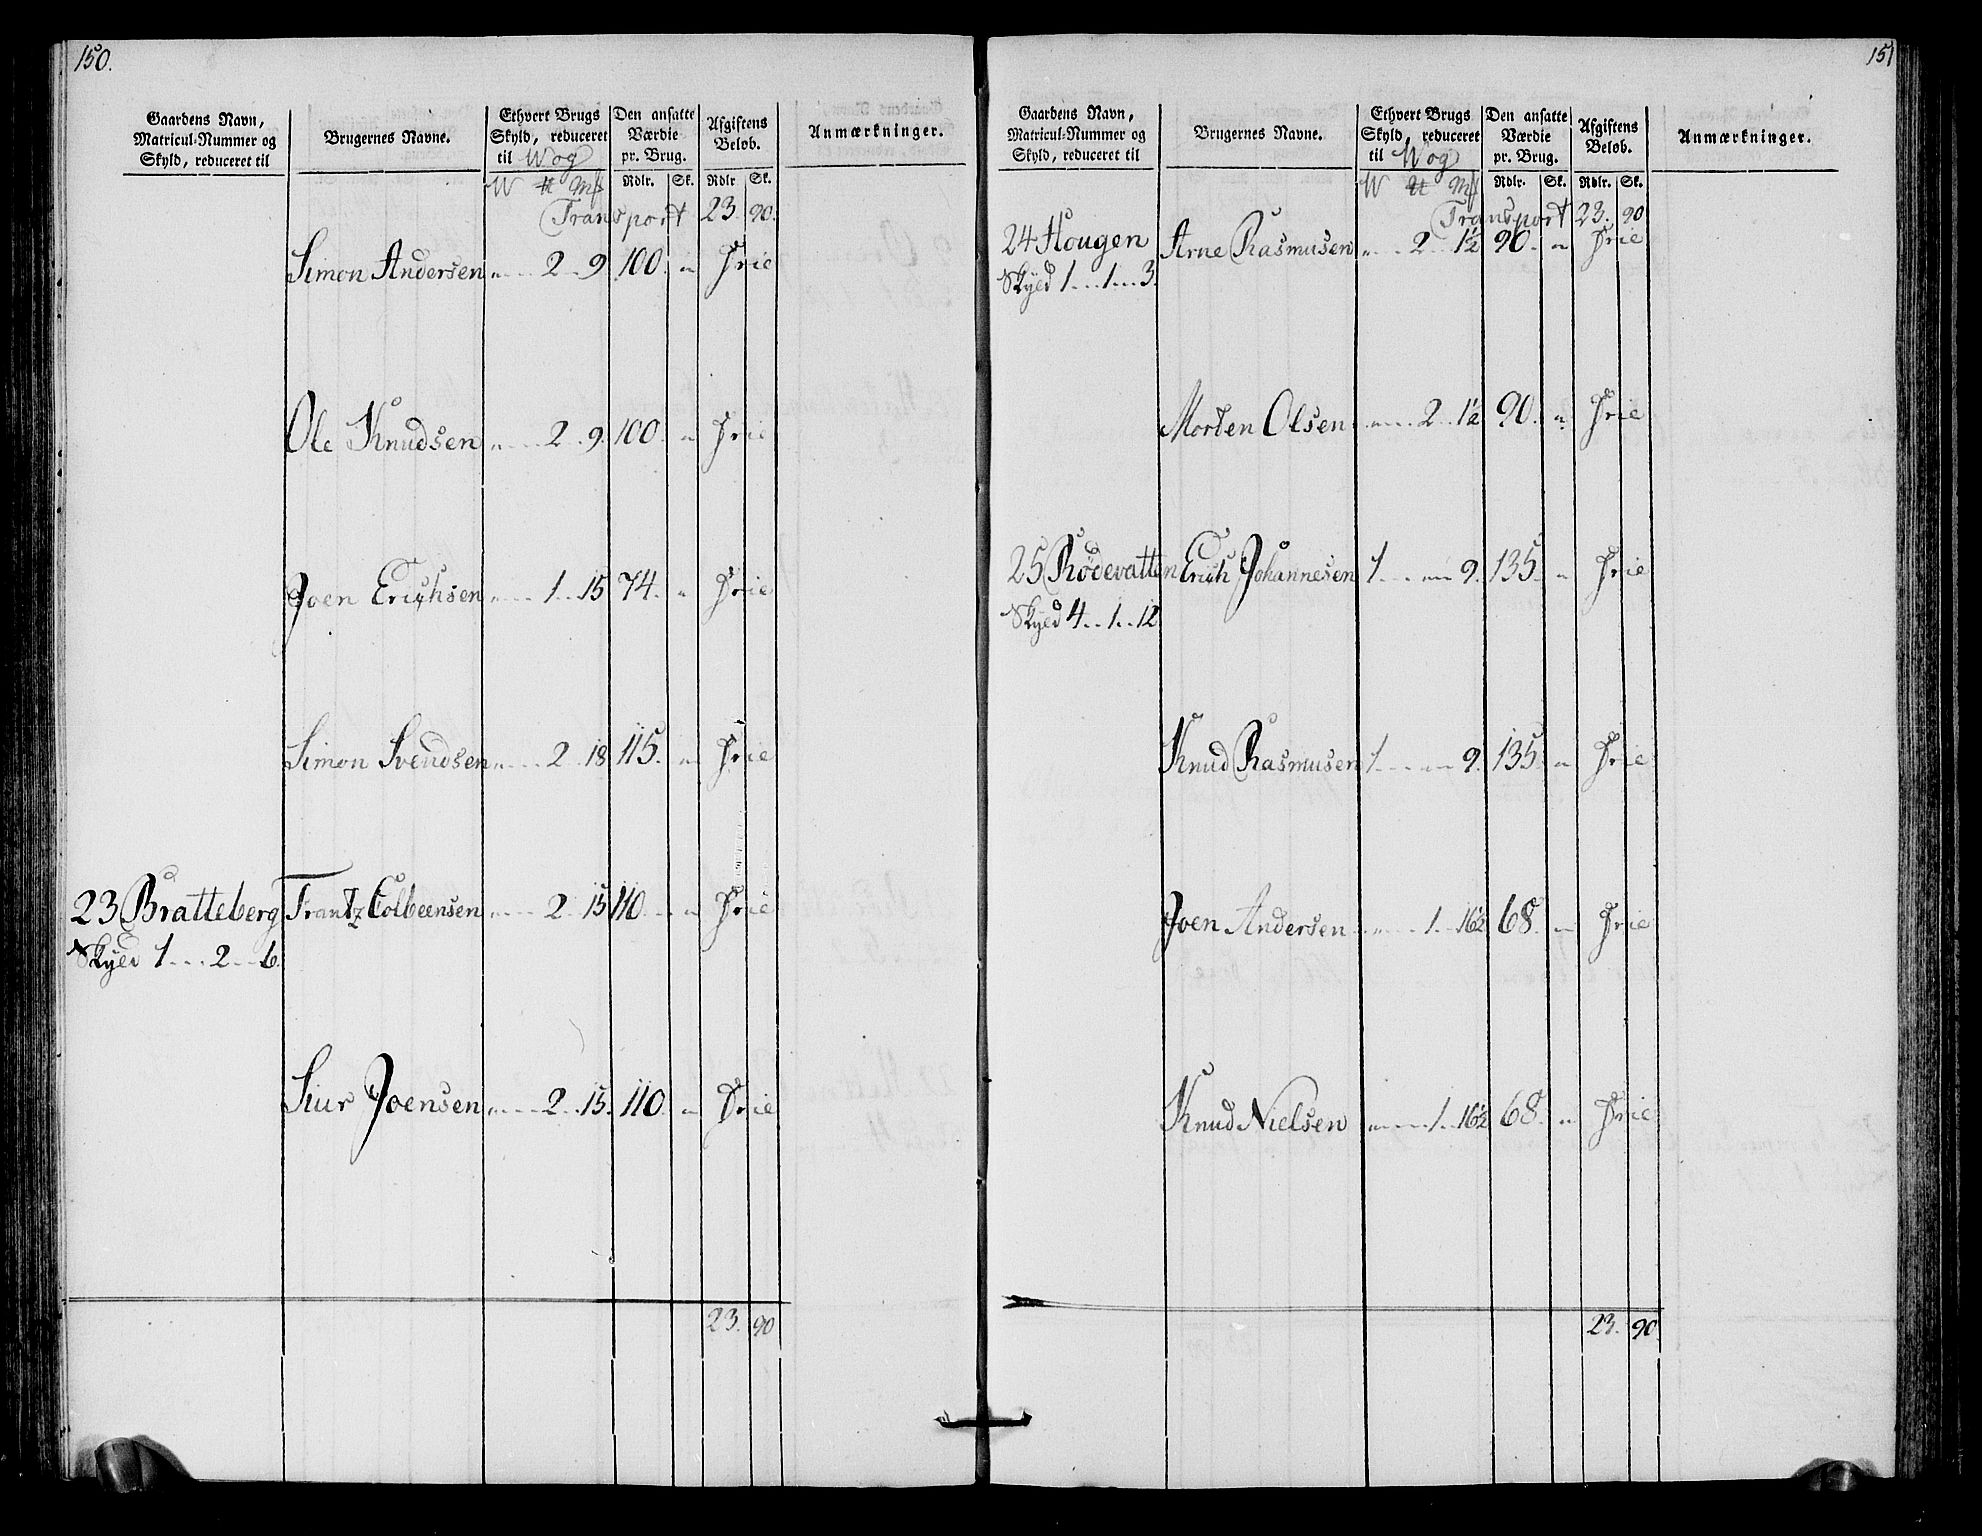 150.
Gaardens Navn, Matricul-Nummer og Skyld, reduceret til
Brugernes Navne.
Ethvert Brugs Skyld, reduceret til Wog
Den ansatte Værdie pr. Brug.
Afgiftens Beløb.
Anmærkninger.
W ℔ Mk Rdlr. Sk. Rdlr Sk.
Transport 23. 90.
Simon Andersen „ 2 9 100. „ Frie
Ole Knudsen „ 2 9. 100. „ Frie
Joen Erichsen „ 1 15 74. „ Frie
Simon Svendsen „ 2 18 115. „ Frie
23 Bratteberg Frantz Colbeensen „ 2 15 110. „ Frie
Skyld 1 2 6.
Siur Joensen „ 2 15. 110. „ Frie
23. 90
151
Gaardens Navn, Matricul-Nummer og Skyld, reduceret til
Brugernes Navne.
Ethvert Brugs Skyld, reduceret til Wog
Den ansatte Værdie pr. Brug.
Afgiftens Beløb.
Anmærkninger.
W ℔ Mk Rdlr. Sk. Rdlr. Sk.
Transport 23. 90
24 Hougen Arne Rasmusen „ 2 1½ 90. „ Frie
Skyld 1 1 3.
Morten Olsen „ 2 1½ 90. „ Frie
25 Rödevatten Erich Johannesen 1 „ 9. 135. „ Frie
Skyld 4 1 12
Knud Rasmusen 1 „ 9. 135. „ Frie
Joen Andersen „ 1 16½ 68. „ Frie
Knud Nielsen „ 1 16½ 68. „ Frie
23. 90.